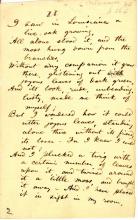 I saw in Louisiana a
live-oak growing,
All alone stood it, and the
moss hung down from the
branches,
Without any companion it grew
there, glistening out with
joyous leaves of dark green,
And its look, rude, unbending,
lusty, made me think of
myself;
But I wondered how it could
utter joyous leaves, standing
alone there without its
its lover—For I knew I could
not;
And I plucked a twig with
a certain number of leaves
upon it, and twined around
it a little moss, and brought
it away—And I have placed
it in sight in my room,
2